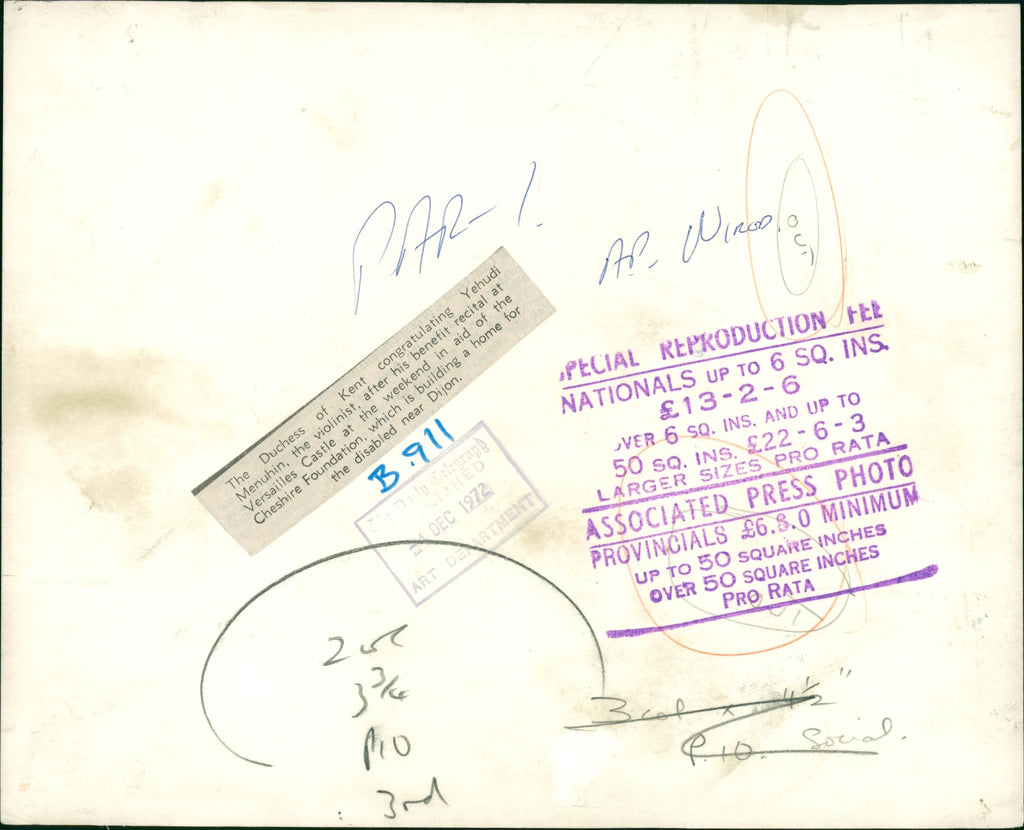 PAR- 1.
AP-
OUT
The Duchess of Kent congratulating Yehudi
Menuhin, the violinist, after his benefit recital at
Versailles Castle at the weekend in aid of the
Cheshire Foundation, which is building a home for
the disabled near Dijon.
B.911
The Daily Telegraph
PUBLISHED
DEC 1972
ART DEPARTMENT
SPECIAL REPRODUCTION FEE
NATIONALS UP TO 6 SQ. INS.
£13-2-6
OVER 6 SQ. INS. AND UP TO
50 SQ. INS. £22-6-3
LARGER SIZES PRO RATA
ASSOCIATED PRESS PHOTO
PROVINCIALS £6.8.0 MINIMUM
UP TO 50 SQUARE INCHES
OVER 50 SQUARE INCHES
PRO RATA
OUT
2 col
3 3/4
P.10
3rd
3 col x 4½"
P.10. Social.